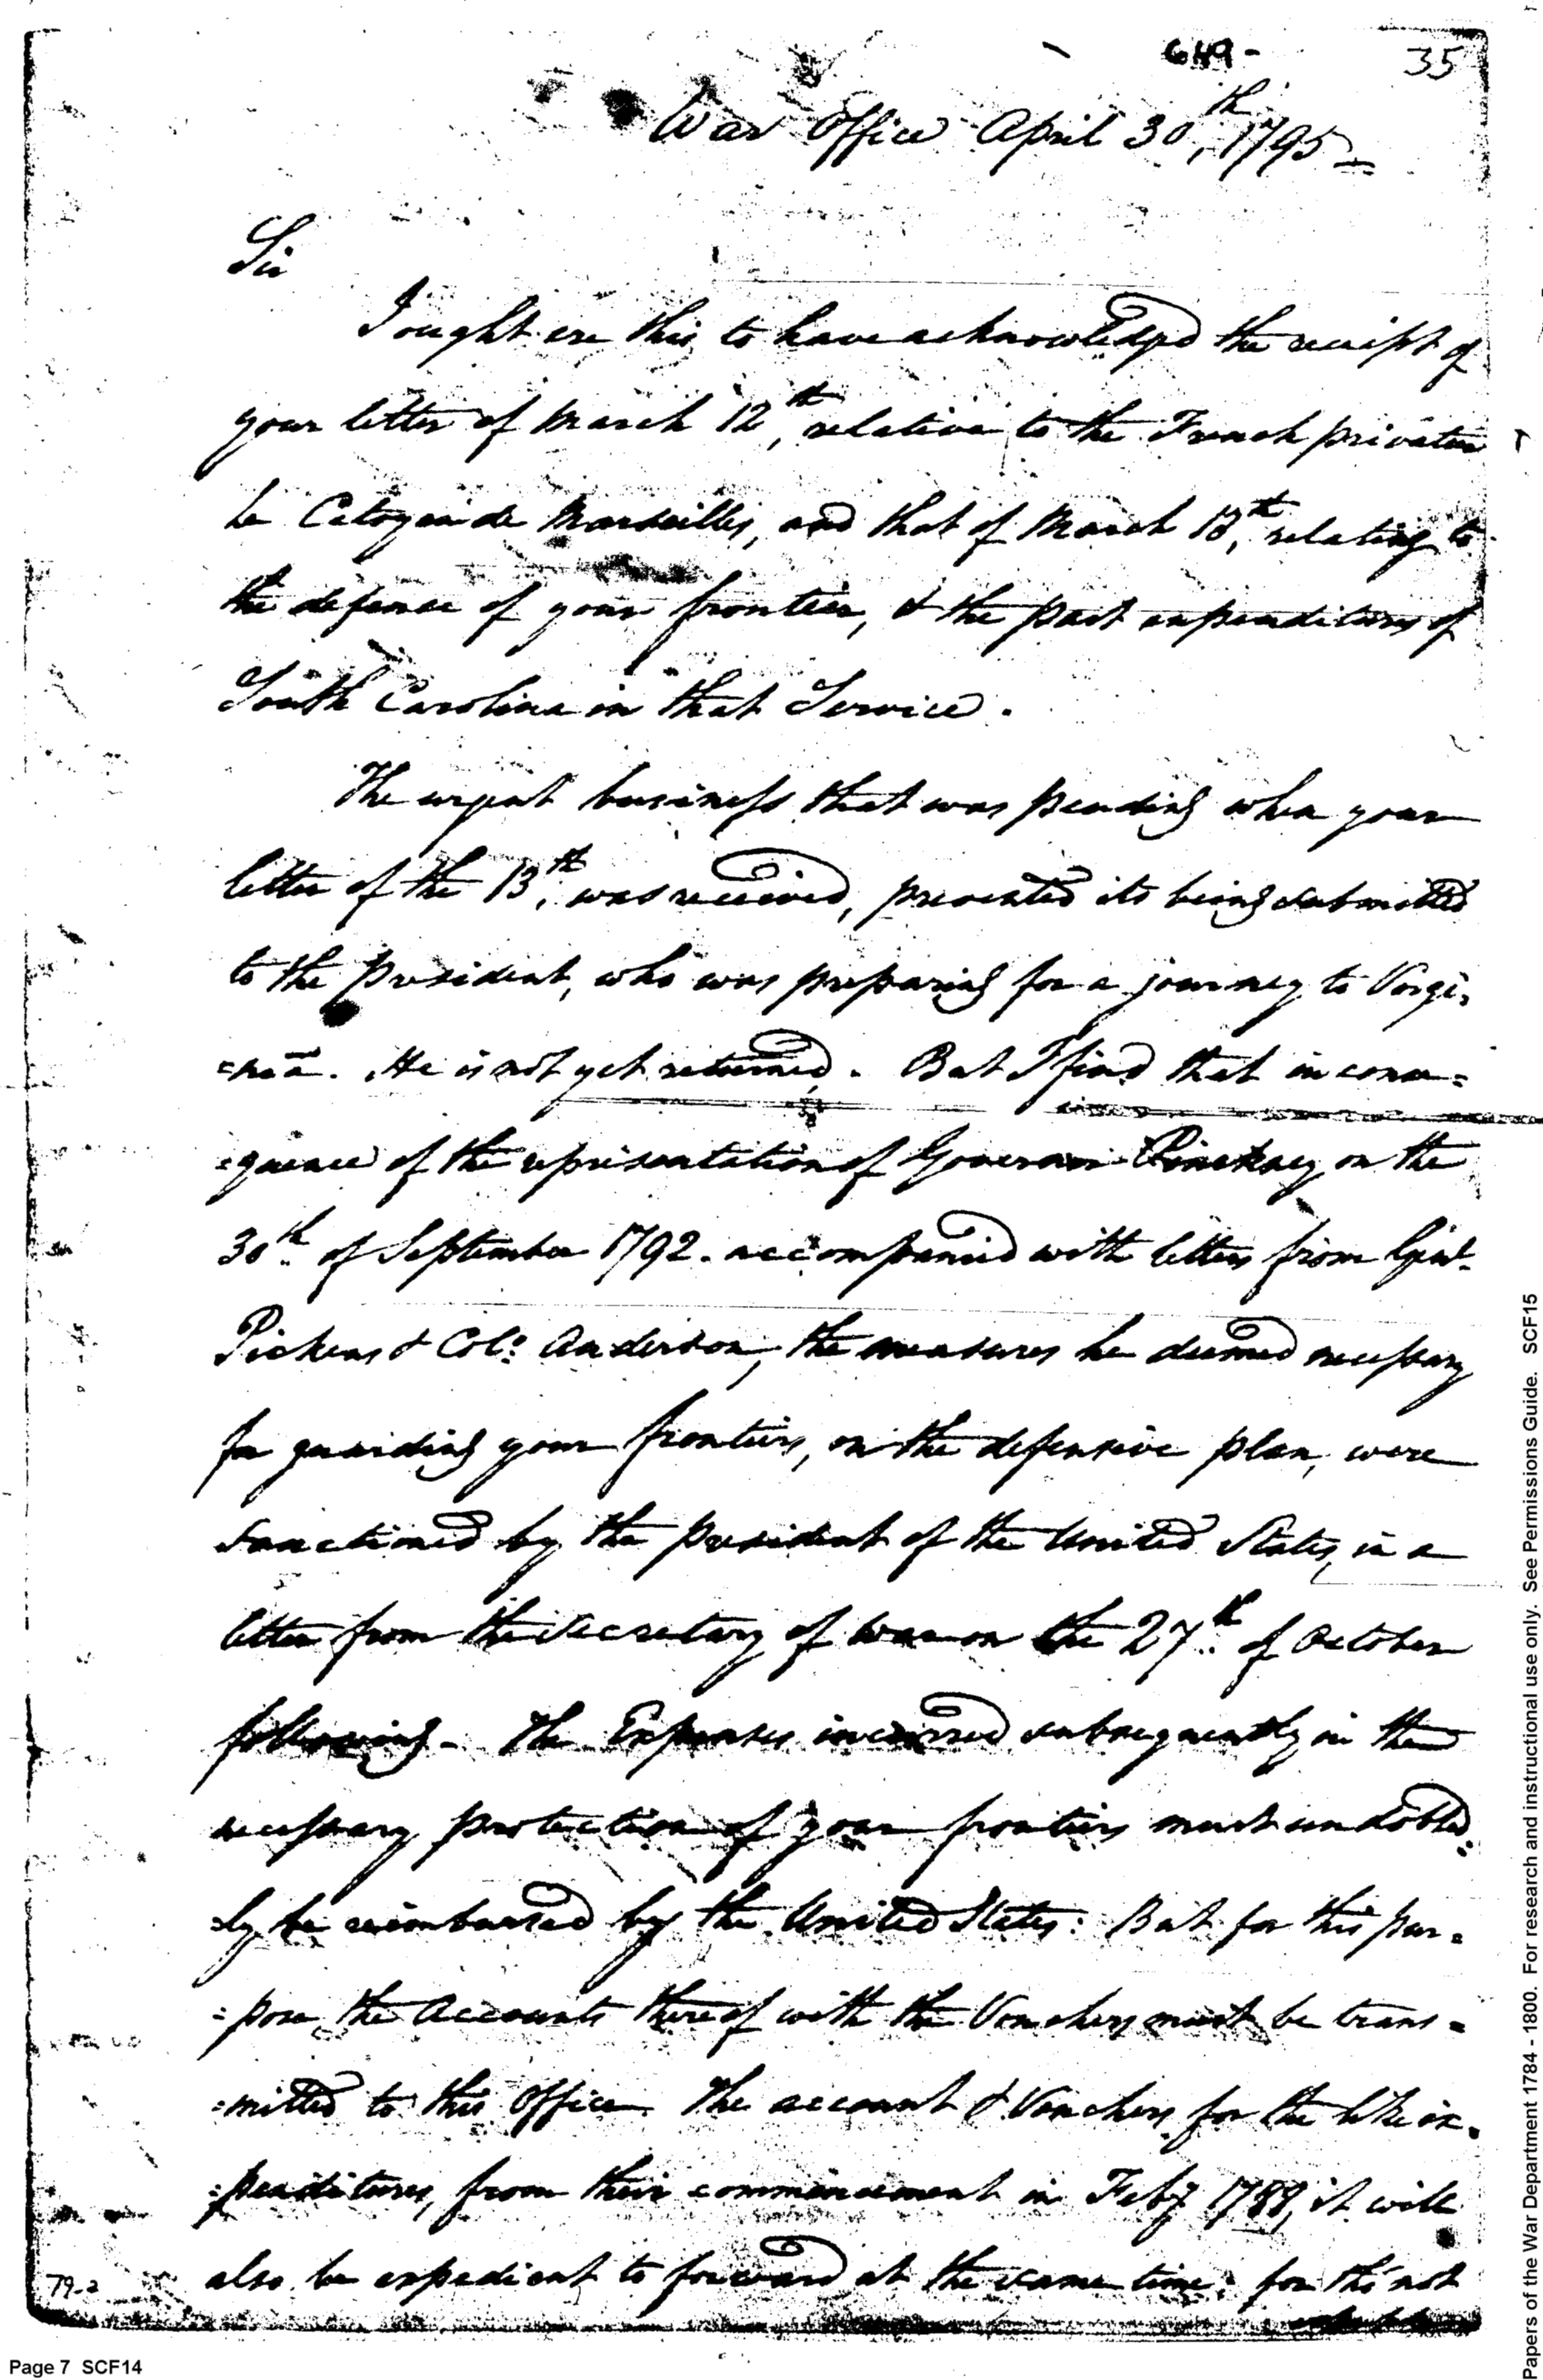 649-
35
War Office April 30th, 1795
Sir
I ought ere this to have acknowledged the receipt of
your letter of March 12th, relative to the French privateer
Le Citoyen de Marseilles, and that of March 13th, relating to
the defence of your frontier, & the past expenditures of
South Carolina in that Service.
The urgent business that was pending when your
letter of the 13th, was received, prevented its being submitted
to the President, who was preparing for a journey to Virgi,
=nia. He is not yet returned. But I find that in conse=
=quence of the representation of Governor Pinckney on the
30th of September 1792. accompanied with letters from Genl.
Pickens & Colo: Anderson, the measures he deemed necessary
for guarding your frontiers, on the defensive plan, were
sanctioned by the president of the United States, in a
letter from the Secretary of war on the 27th of October
following. The Expenses incurred subsequently in the
necessary protection of your frontiers must undoubted=
ly be reimbursed by the United States: But for this pur=
=pose the Accounts thereof with the Vouchers must be trans=
=mitted to this Office. The account & Vouchers for the like ex=
=penditures, from their commencement in Feby 1789, it will
also be expedient to forward at the same time: for tho' not
79-2
Page 7 SCF14
Papers of the War Department 1784 - 1800. For research and instructional use only. See Permissions Guide. SCF15